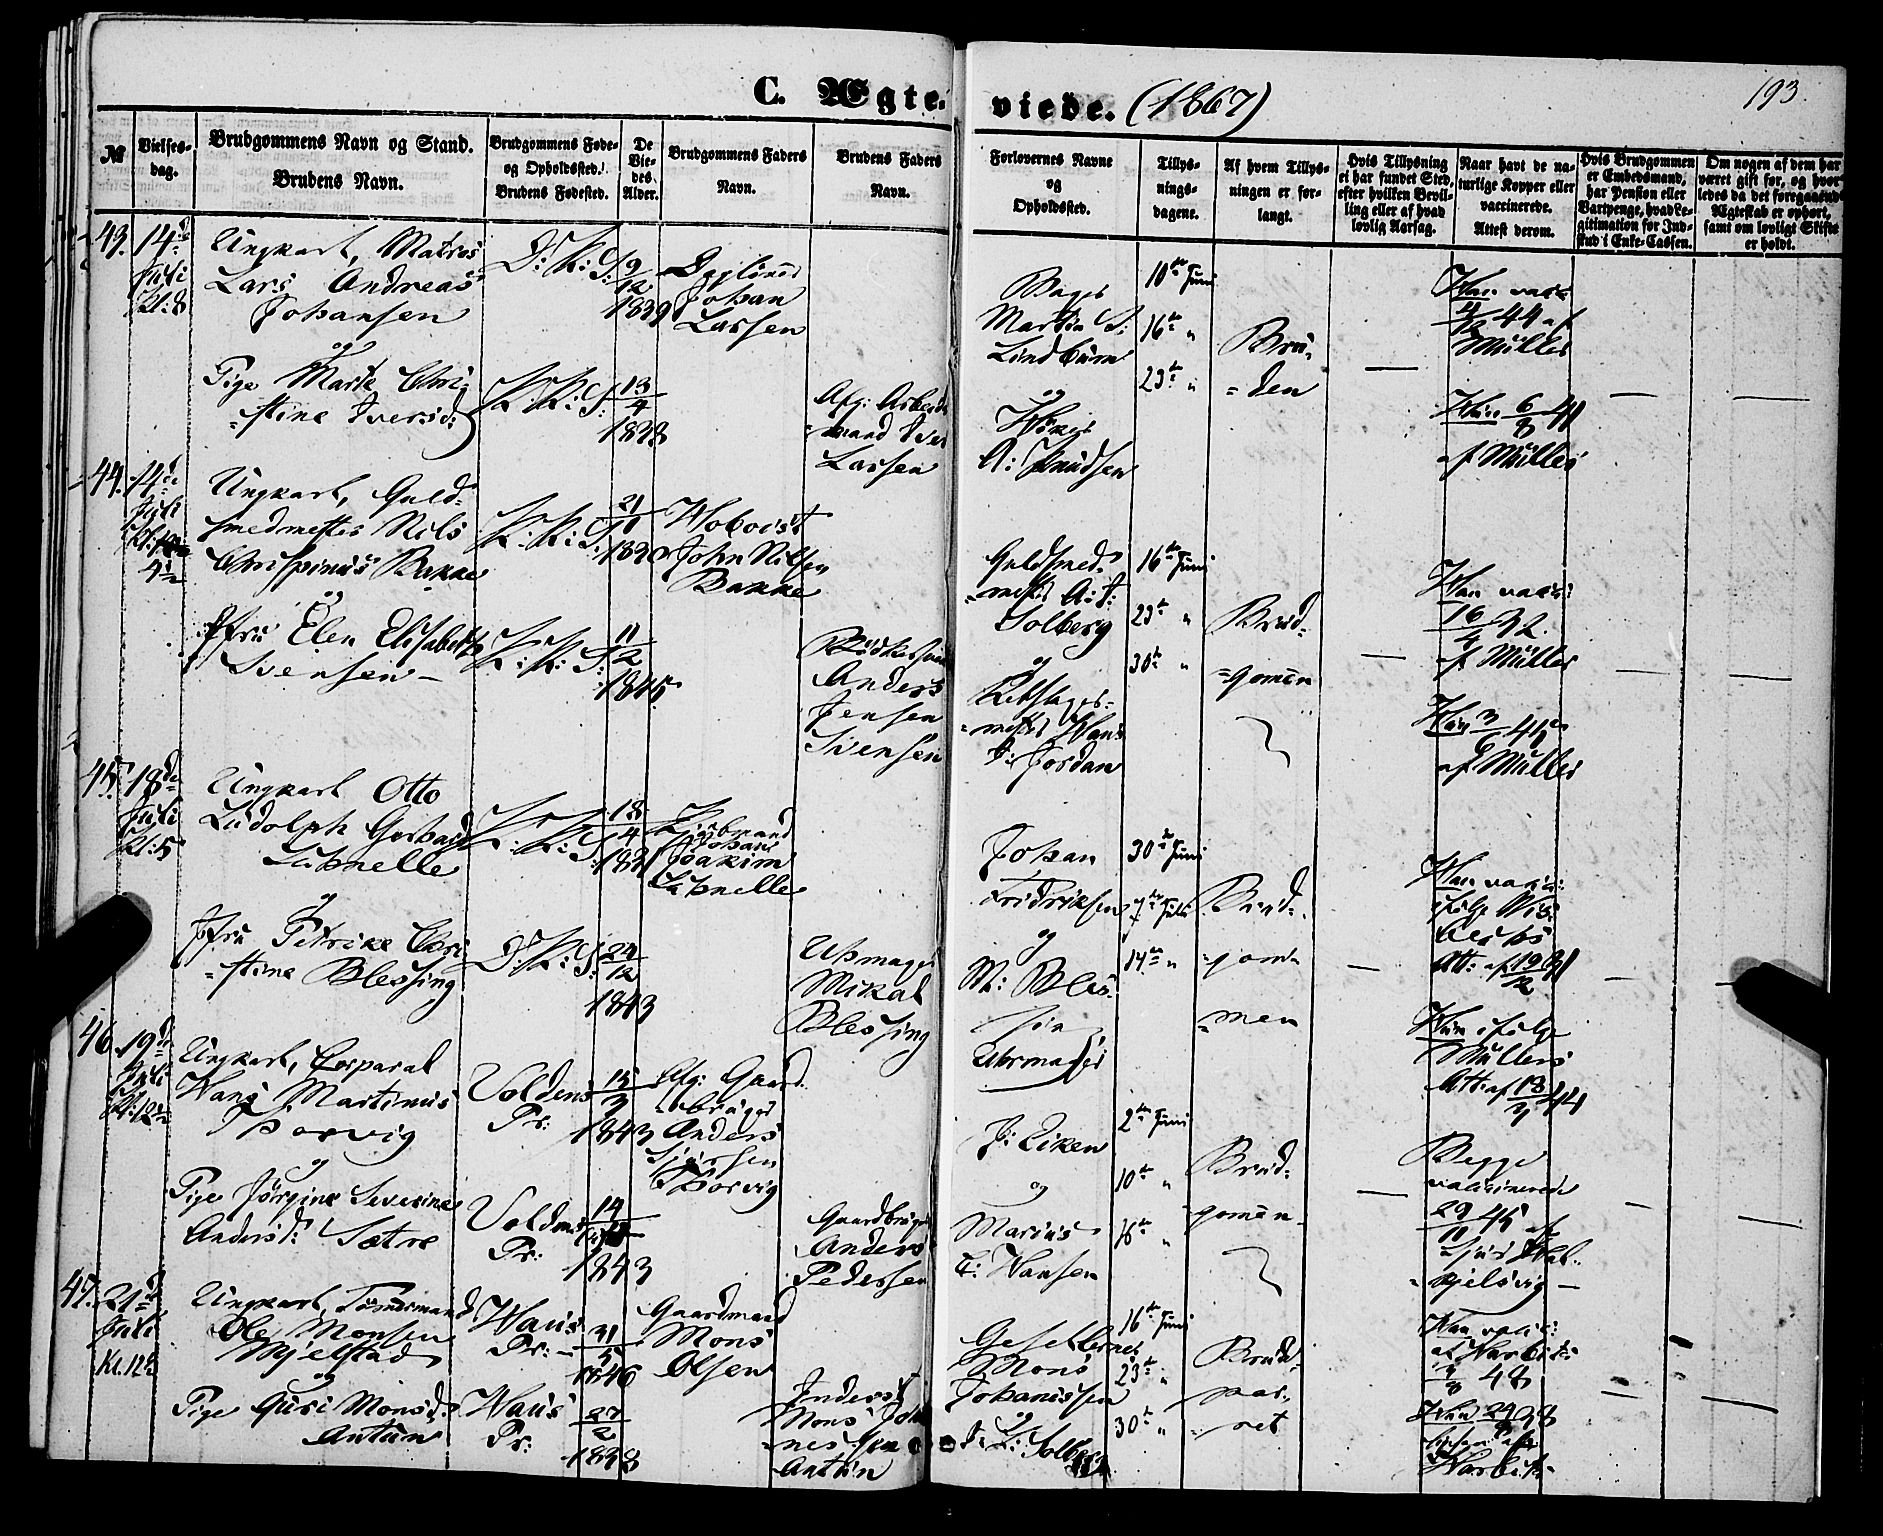 C. Ægte-
viede. (1867)
193.
№
Vielses-
dag.
Brudgommens Navn og Stand.
Brudens Navn.
Brudgommens Føde-
og Opholdssted.
Brudens Fødested.
De
Vie-
des
Alder.
Brudgommens Faders
Navn.
Brudens Faders
Navn.
Forlovernes Navne
og
Opholdssted.
Tillys-
nings-
dagene.
Af hvem Tillys-
ningen er for-
langt.
Hvis Tillysning
ei har fundet Sted,
efter hvilken Bevil-
ling eller af hvad
lovlig Aarsag.
Naar havt de na-
turlige Kopper eller
vaccinerede.
Attest derom.
Hvis Brudgommen
er Embedsmand,
har Pension eller
Vartpenge, hvad Le-
gitimation for Ind-
skud i Enke-Cassen.
Om nogen af dem har
været gift før, og hvor-
ledes da det foregaaende
Ægteskab er ophørt,
samt om lovligt Skifte
er holdt.
43. 14de
Juli
Kl: 8
Ungkarl, Matros
Lars Andreas
Johansen
og
Pige Marte Chri-
stine Iversd:
D: K: S:
K. K: S:
9
12
1839
13
4
1838
Daglönner
Johan
Larsen
Afg: Arbeids-
mand Iver
Larsen
Martin S:
Lindbürn
og
A: Knudsen
10de Juni
16de "
23de "
Bru-
den
Han vacc:
44 af
Müller
Hün 6/8 41
af Müller
44. 14de
Juli
Ungkarl, Guld-
smedmester Nils
Chrispinus Bakke
og
Jfru Elen Elisabeth
Svensen
K: K: S:
K: K: S:
21
11
1830
11
2
1845
John Nilsen
Bakke
Anders
Jensen
Svensen
Guldsmed-
mester A: T:
Solberg
og
Rebslager-
mester Hans
J: Jordan
16de Juni
23de "
30de "
Brud-
gomen
Han vacc:
16/4 32.
af Müller
Hün
af Müller
45. 18de
Juli
Kl: 5
Ungkarl Otto
Ludolph Gerhard
Schnelle
og
Jfru Petrike Chri-
stine Blessing
K. K: S:
D: K: S:
18
4
1831
24
12
1843
Johan
Joakim
Schnelle
Uhrmager
Mikal
Blessing
Johan
Fridriksen
og
M: Bles-
sin
Uhrmager
30te Juni
7de Juli
14de "
Brud-
gom-
men
Han vacc:
ifølge
Att: af 19/12 31
Hün ifølge
Müllers
Att: af 13/9 44
46. 19de
Juli
Ungkarl, Corporal
Hans Martinus
Thorvig
og
Pige Jørgine Severine
Andersd: Sætre
Voldens
Pr:
Voldens
Pr:
15
3
1843
14
1843
Afg: Gaard-
bruger
Anders
Sjursen
Thorvig
Gaardbruger
Anders
Pedersen
J: Eiken
og
Marius
T: Hansen
2den Juni
10de "
16de "
Brud-
gomen
Begge
vaccinerede
29/11 45 af
47. 21de
Juli
Kl. 12½
Ungkarl, Tömmermand
Ole Monsen
Mjelstad
og
Pige Guri Monsd:
Antun
Haus
Pr: –
Haus
Pr:
31
5
1846
27
2
1838
Gaardmand
Mons
Olsen
Inderst
Mons Joha-
nessen
Antün
Mons
Johannessen
og
Solberg
16de Juni
23de "
30te "
Brude-
par-
ret
Han vacc:
af Harbitz
48
Hün
Harbitz